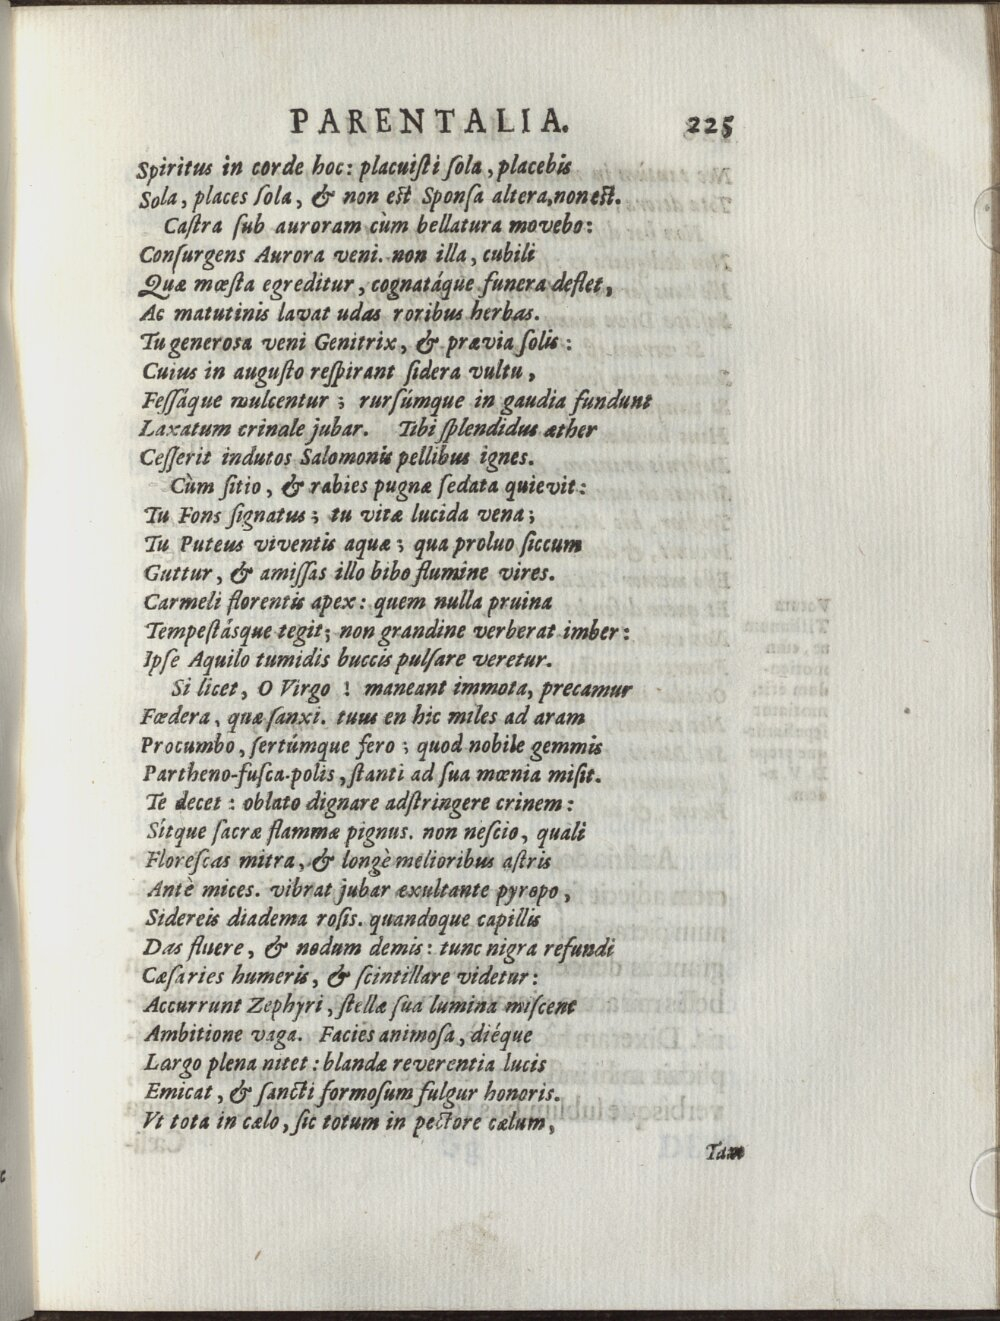 PARENTALIA. 225
Spiritus in corde hoc: placuiſti ſola, placebis
Sola, places ſola, & non eſt Sponſa altera, non eſt.
Caſtra ſub auroram cùm bellatura movebo:
Conſurgens Aurora veni. non illa, cubili
Quæ mœſta egreditur, cognatáque funera deflet,
Ac matutinis lavat udas roribus herbas.
Tu generosa veni Genitrix, & prævia ſolis:
Cuius in auguſto reſpirant ſidera vultu,
Feſſáque mulcentur; rurſúmque in gaudia fundunt
Laxatum crinale jubar. Tibi ſplendidus æther
Ceſſerit indutos Salomonis pellibus ignes.
Cùm ſitio, & rabies pugnæ ſedata quievit:
Tu Fons ſignatus; tu vitæ lucida vena;
Tu Puteus viventis aquæ; qua proluo ſiccum
Guttur, & amiſſas illo bibo flumine vires.
Carmeli florentis apex: quem nulla pruina
Tempeſtásque tegit; non grandine verberat imber:
Ipſe Aquilo tumidis buccis pulſare veretur.
Si licet, O Virgo! maneant immota, precamur
Fœdera, quæ ſanxi. tuus en hic miles ad aram
Procumbo, ſertúmque fero; quod nobile gemmis
Partheno-fuſca-polis, ſtanti ad ſua mœnia miſit.
Te decet: oblato dignare adſtringere crinem:
Sítque ſacræ flammæ pignus. non neſcio, quali
Floreſcas mitra, & longè melioribus aſtris
Antè mices. vibrat jubar exultante pyropo,
Sidereis diadema roſis. quandoque capillis
Das fluere, & nodum demis: tunc nigra refundi
Cæſaries humeris, & ſcintillare videtur:
Accurrunt Zephyri, ſtellæ ſua lumina miſcent
Ambitione vaga. Facies animoſa, diéque
Largo plena nitet: blandæ reverentia lucis
Emicat, & ſancti formoſum fulgur honoris.
Vt tota in cælo, ſic totum in pectore cælum,